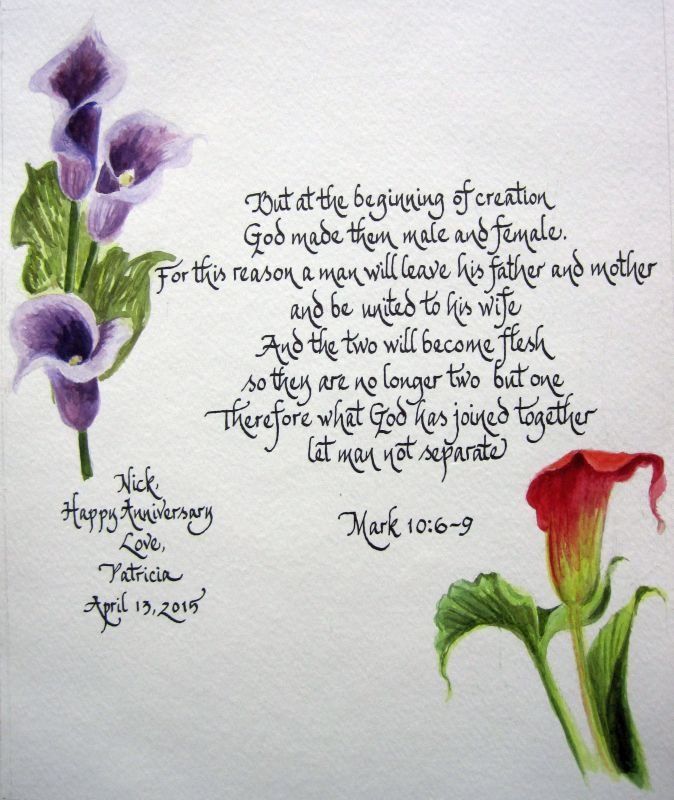 But at the beginning of creation
God made them male and female.
For this reason a man will leave his father and mother
and be united to his wife
And the two will become flesh
so they are no longer two but one
Therefore what God has joined together
let man not separate
Mark 10:6-9
Nick,
Happy Anniversary
Love,
Patricia
April 13, 2015